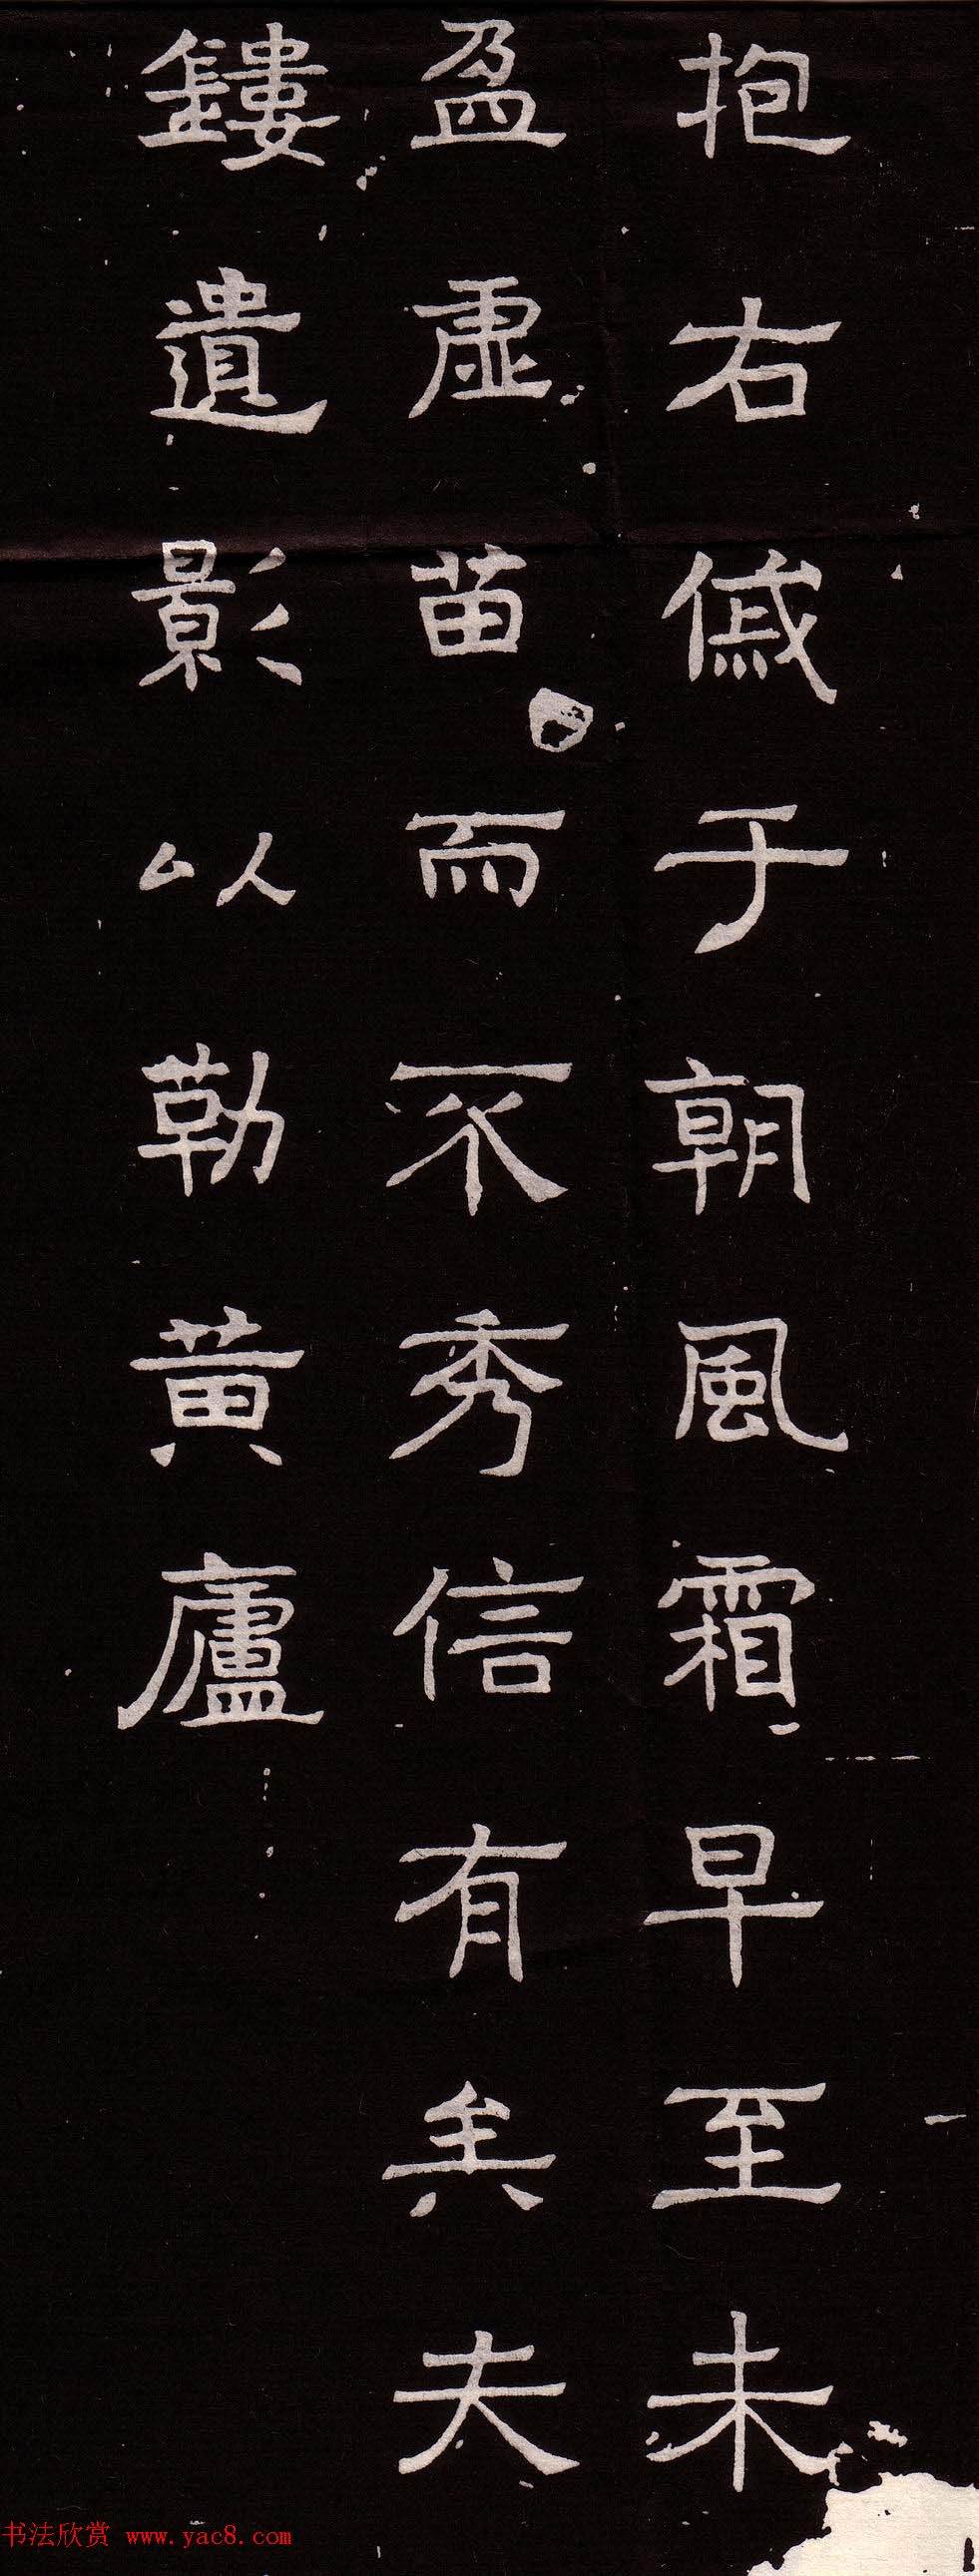 抱右傶于朝風霜早至未
盈虛苗而不秀信有矣夫
鏤遺影以勒黃廬
书法欣赏 www.yac8.com